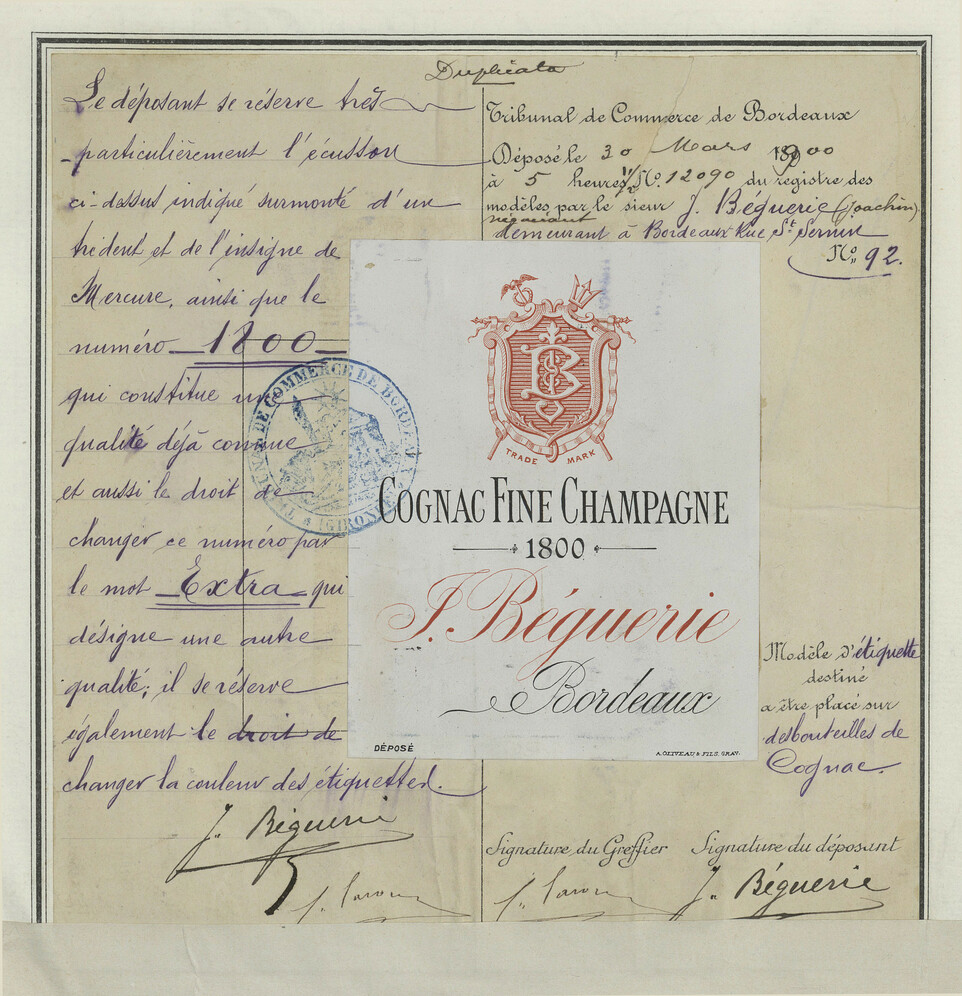 Duplicata
Le déposant se réserve très
particulièrement l'écusson
ci-dessus indiqué surmonté d'un
trident et de l'insigne de
Mercure, ainsi que le
numéro 1800
qui constitue une
qualité déjà connue
et aussi le droit de
changer ce numéro par
le mot Extra qui
désigne une autre
qualité; il se réserve
également le droit de
changer la couleur des étiquettes.
J. Béguerie
Tribunal de Commerce de Bordeaux
Déposé le 30 Mars 1900
à 5 heures 1/2 No. 12090 du registre des
modèles par le sieur J. Béguerie (Joachim)
négociant
demeurant à Bordeaux Rue St. Sernin
No. 92.
TRIBUNAL DE COMMERCE DE BORDEAUX
(GIRONDE)
TRADE MARK
COGNAC FINE CHAMPAGNE
1800
J. Béguerie
Bordeaux
DÉPOSÉ
A. OLIVEAU & FILS. GRAV.
Modèle d'étiquette
destiné
a être placé sur
des bouteilles de
Cognac.
Signature du Greffier
Signature du déposant
J. Béguerie